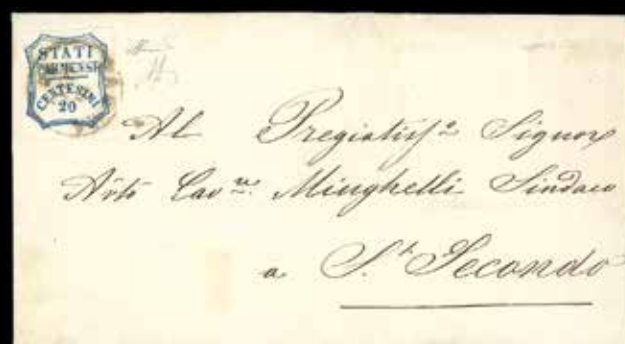 STATI
PARMENSI
CENTESIMI
20
Al Pregiatiss.º Signor
Avto Cav.re Minghelli Sindaco
a S.t Secondo